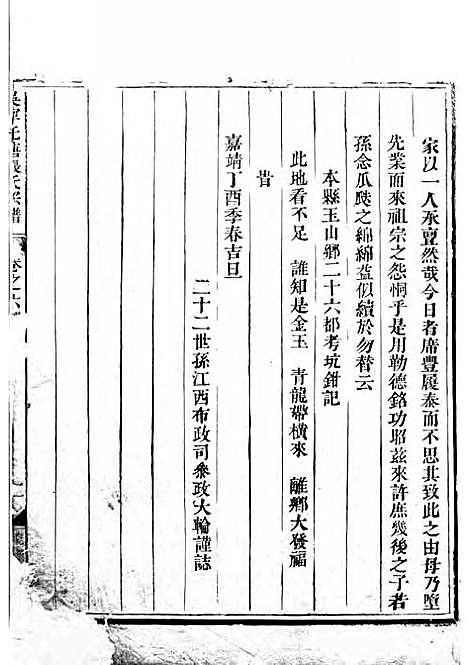 家以一人承亶然哉今日者席豐履泰而不思其致此之由毋乃墮
先業而來祖宗之怨恫乎是用勒德銘功昭茲來許庶幾後之子若
孫念瓜瓞之綿綿益似續於勿替云
本縣玉山鄉二十六都考坑鉗記
此地看不足 誰知是金玉 青龍帶横來 離鄉大發福
旹
嘉靖丁酉季春吉旦
二十二世孫江西布政司叅政大輪謹誌
吳寧托塘張氏宗譜 卷之六